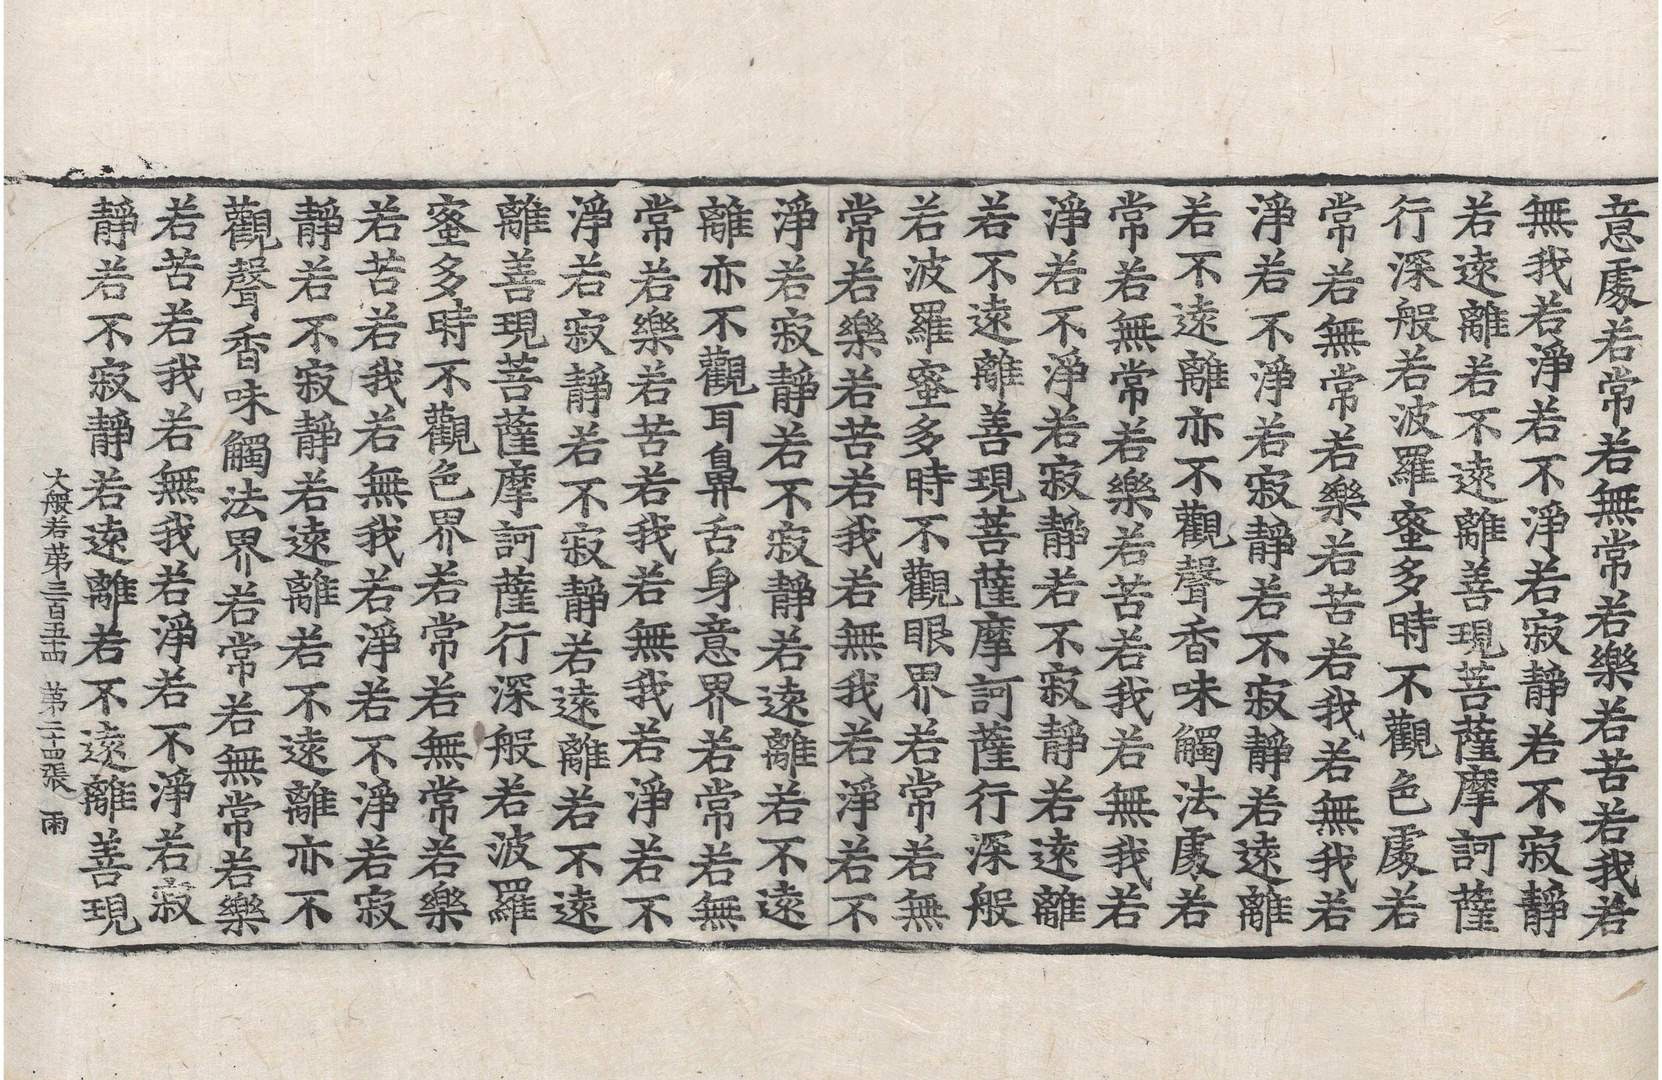 意處若常若無常若樂若苦若我若
無我若淨若不淨若寂靜若不寂靜
若遠離若不遠離善現菩薩摩訶薩
行深般若波羅蜜多時不觀色處若
常若無常若樂若苦若我若無我若
淨若不淨若寂靜若不寂靜若遠離
若不遠離亦不觀聲香味觸法處若
常若無常若樂若苦若我若無我若
淨若不淨若寂靜若不寂靜若遠離
若不遠離善現菩薩摩訶薩行深般
若波羅蜜多時不觀眼界若常若無
常若樂若苦若我若無我若淨若不
淨若寂靜若不寂靜若遠離若不遠
離亦不觀耳鼻舌身意界若常若無
常若樂若苦若我若無我若淨若不
淨若寂靜若不寂靜若遠離若不遠
離善現菩薩摩訶薩行深般若波羅
蜜多時不觀色界若常若無常若樂
若苦若我若無我若淨若不淨若寂
靜若不寂靜若遠離若不遠離亦不
觀聲香味觸法界若常若無常若樂
若苦若我若無我若淨若不淨若寂
靜若不寂靜若遠離若不遠離善現
大般若第三百五十四 第二十四張 雨